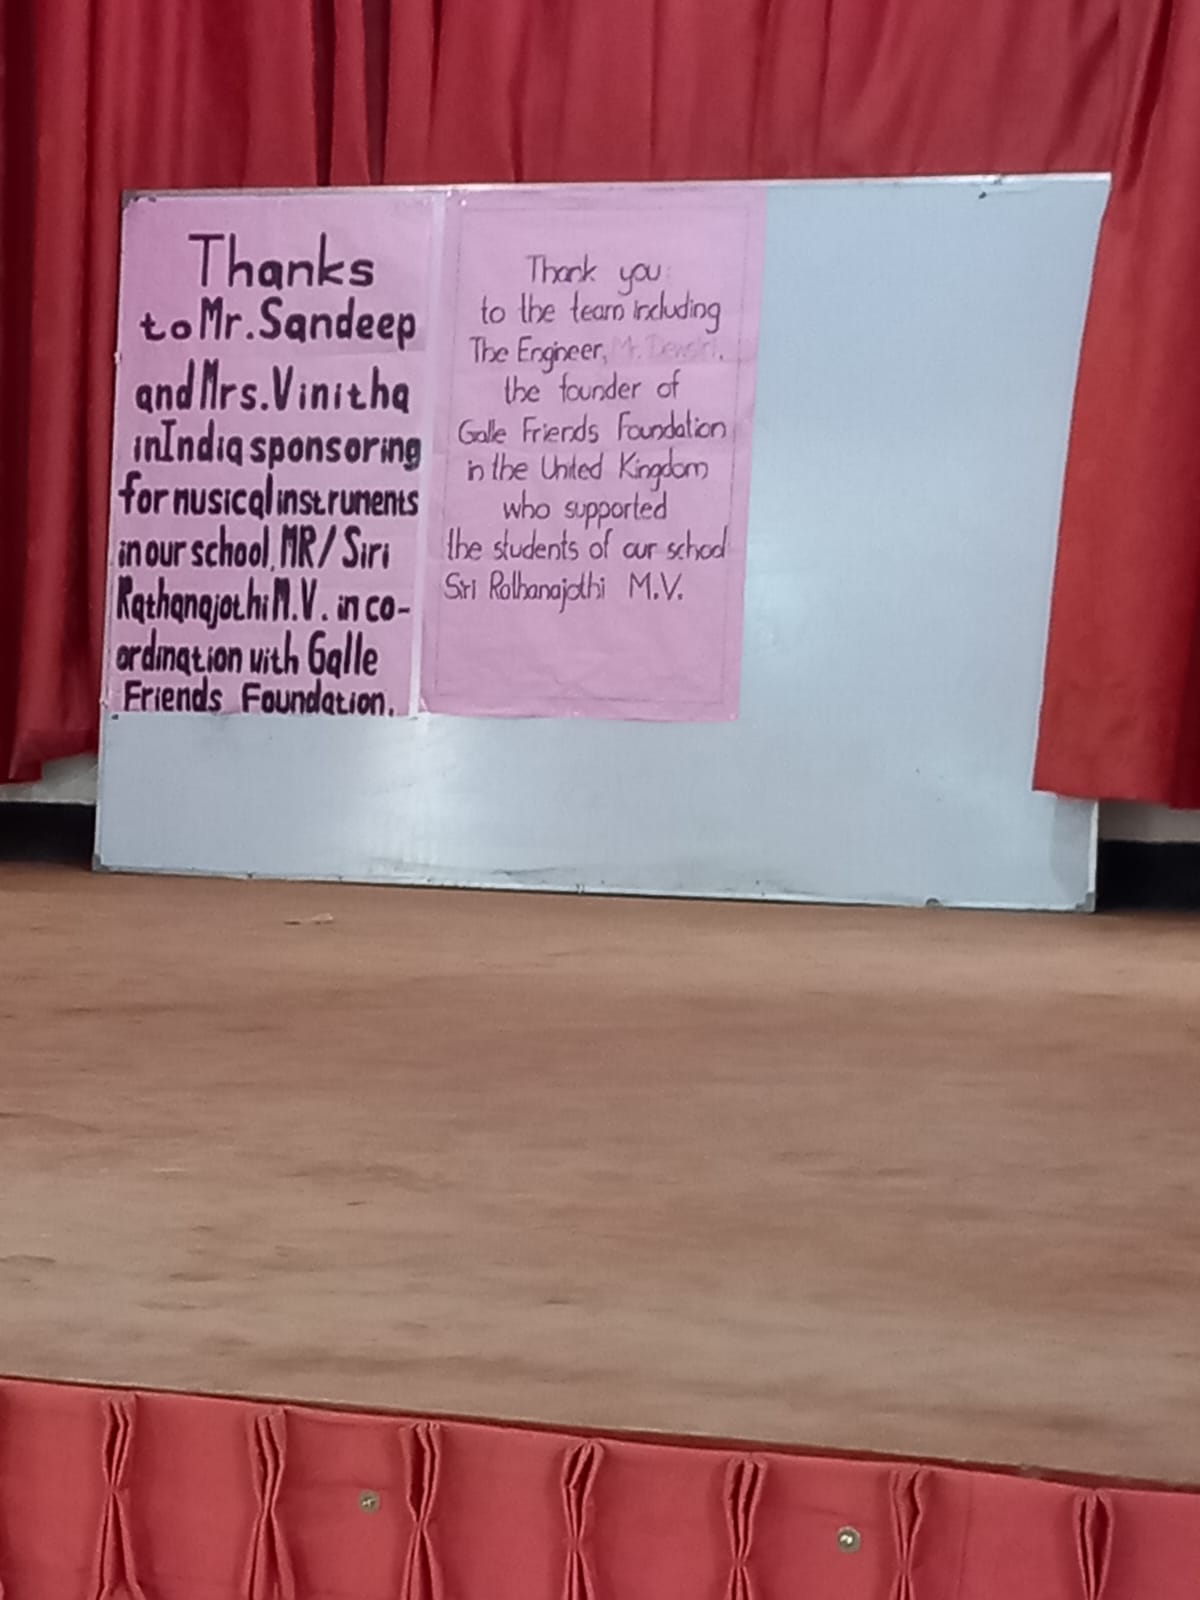 Thanks
to Mr. Sandeep
and Mrs. Vinitha
in India sponsoring
for musical instruments
in our school, MR/ Siri
Rathanajothi M.V. in co-
ordination with Galle
Friends Foundation.
Thank you
to the team including
The Engineer, Mr.
the founder of
Galle Friends Foundation
in the United Kingdom
who supported
the students of our school
Siri Rathanajothi M.V.